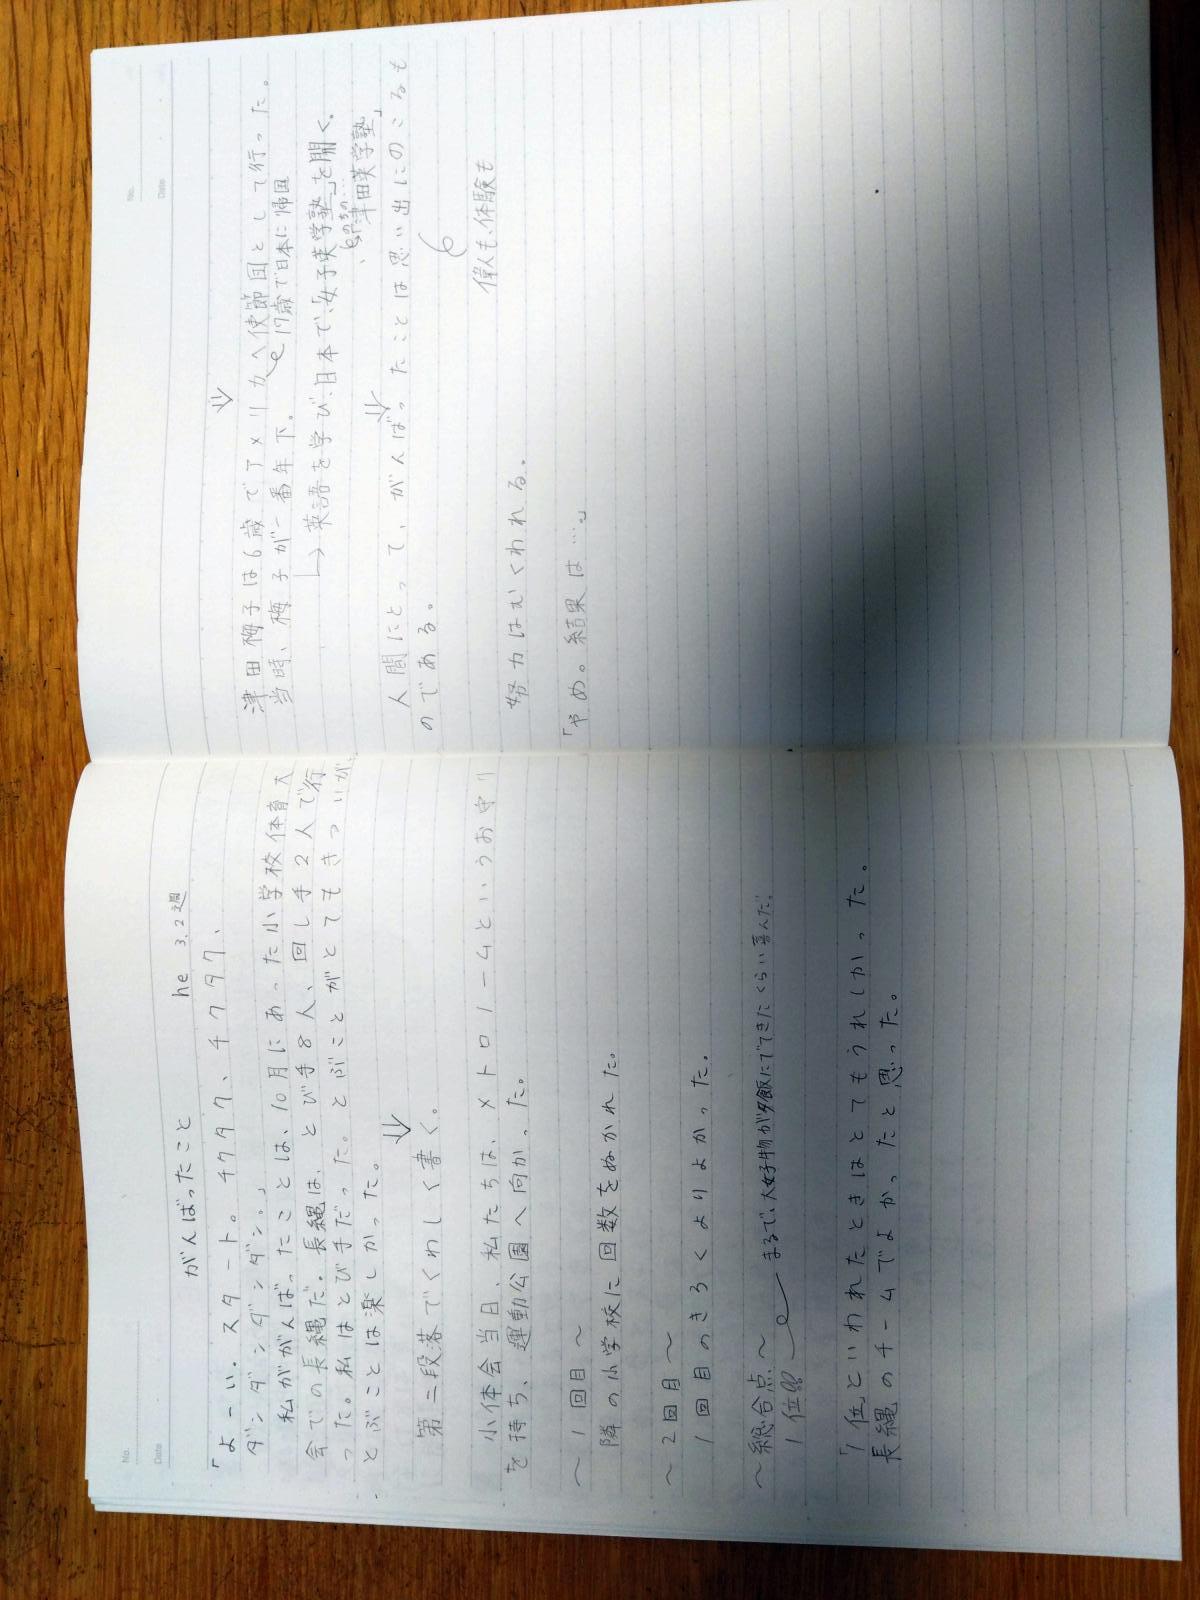 No.
Date
がんばったこと
he 3.2週
「よーい、スタート。チクタク、チクタク、
ダンダンダンダンダン。」
私ががんばったことは、10月にあった小学校体育大
会での長縄だ。長縄は、とび手8人、回し手2人で行
った。私はとび手だった。とぶことがとてもきついが、
とぶことは楽しかった。
⇓
第二段落でくわしく書く。
小体会当日、私たちは、メトロノームというお守り
を持ち、運動公園へ向かった。
〜1回目〜
隣の小学校に回数をぬかれた。
〜2回目〜
1回目のきろくよりよかった。
〜総合点〜
1位!!!
まるで、大好物が夕飯にでてきたくらい喜んだ。
「1位といわれたときはとてもうれしかった。
長縄のチームでよかったと思った。
No.
Date
⇓
津田梅子は6歳でアメリカへ使節団として行った。
当時、梅子が一番年下。
17歳で日本に帰国
→英語を学び、日本で、「女子英学塾」を開く。
のちの…
「津田英学塾」
⇓
人間にとって、がんばったことは思い出にのこるも
のである。
偉人も、体験も
努力はむくわれる。
「やめ。結果は…。」